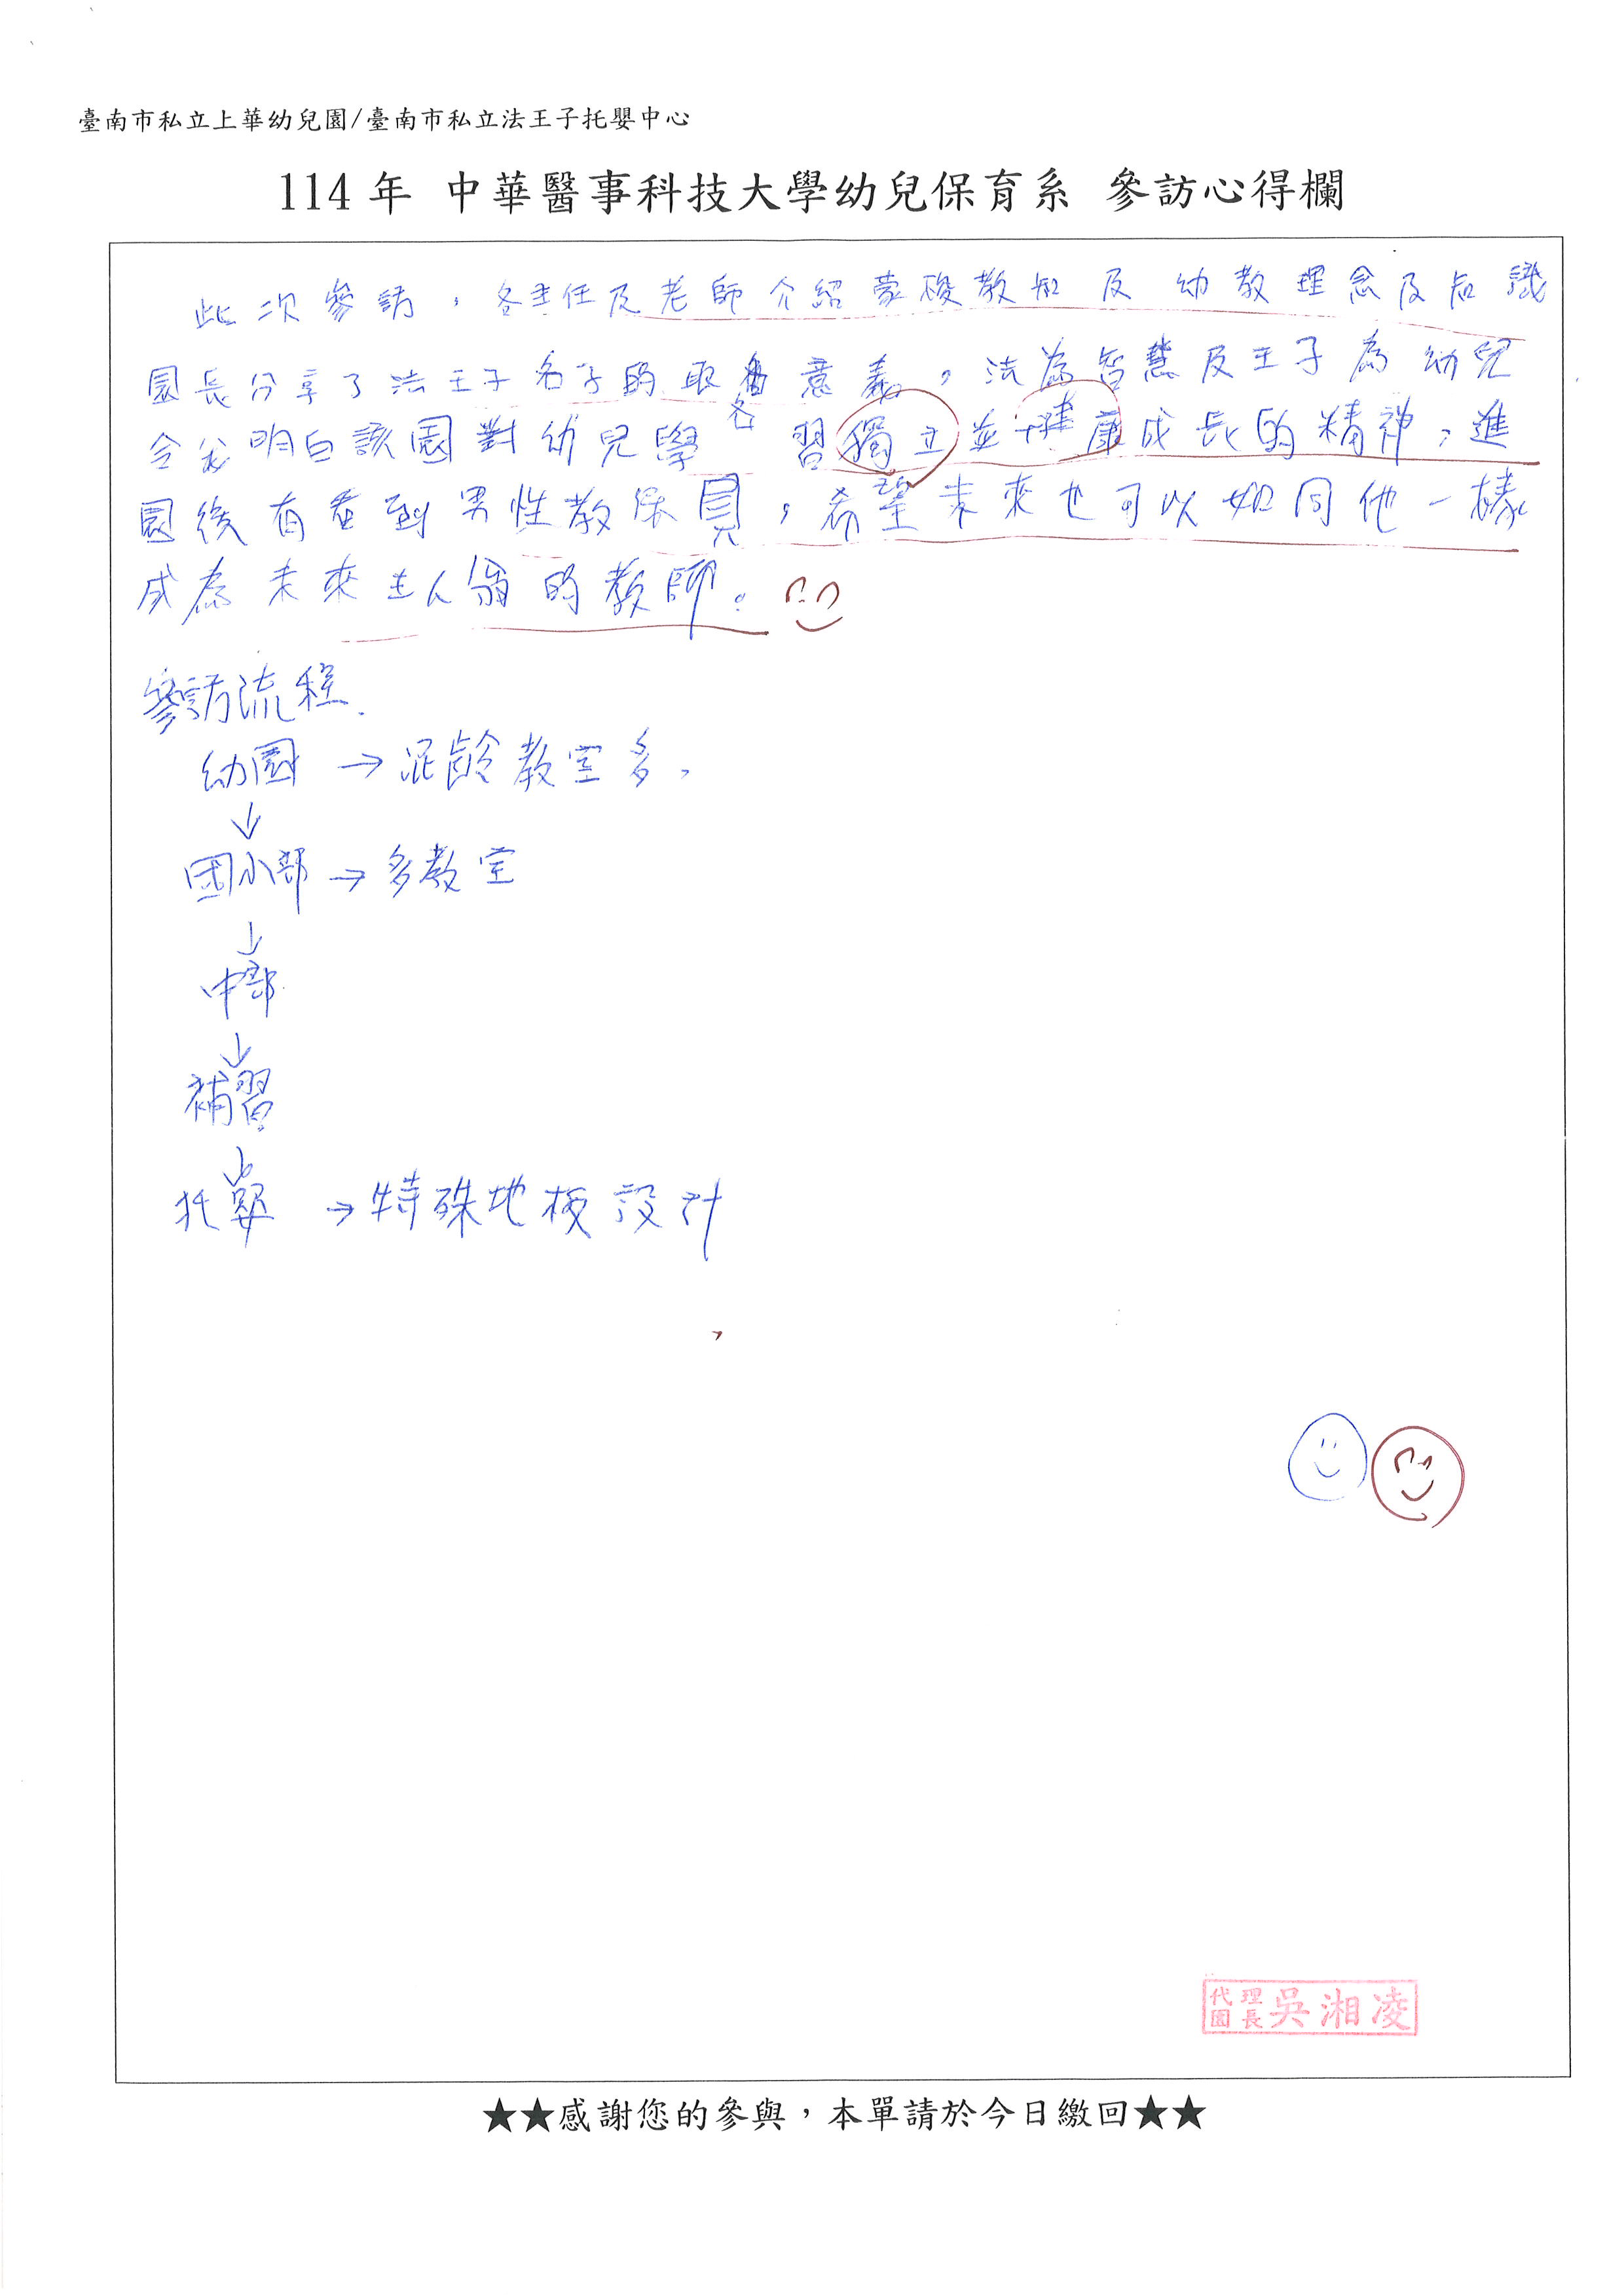 臺南市私立上華幼兒園/臺南市私立法王子托嬰中心
114 年 中華醫事科技大學幼兒保育系 參訪心得欄
此次參訪，各主任及老師介紹蒙梭教知及幼教理念及知識
園長分享了法王子名字的取名意義，法為智慧及王子為幼兒
令我明白該園對幼兒學習獨立並健康成長的精神，進
園後有看到男性教保員，希望未來也可以如同他一樣
成為未來主人翁的教師。
參訪流程.
幼園 → 混齡教室多，
↓
國小部 → 多教室
↓
中部
↓
補習
↓
托嬰 → 特殊地板設計
代理園長 吳湘凌
★★感謝您的參與，本單請於今日繳回★★